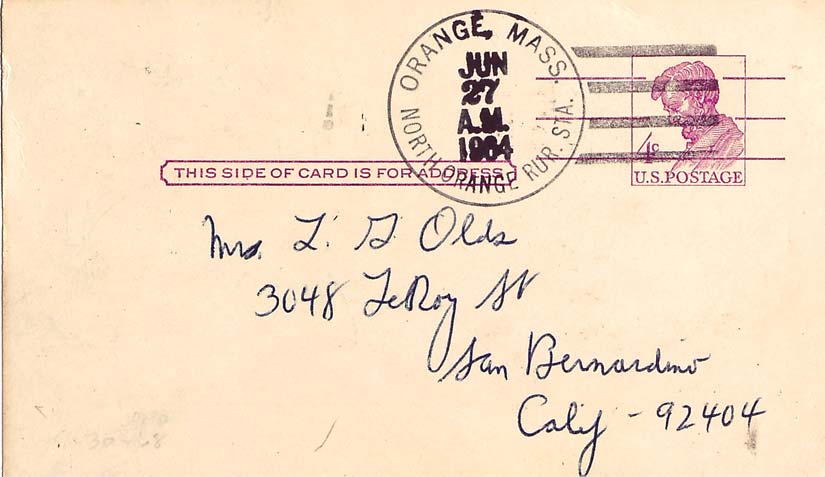 ORANGE, MASS.
JUN
27
A.M.
1964
NORTH ORANGE RUR. STA.
4c
U.S. POSTAGE
THIS SIDE OF CARD IS FOR ADDRESS
Mrs. L. G. Olds
3048 LeRoy St
San Bernardino
Calif - 92404